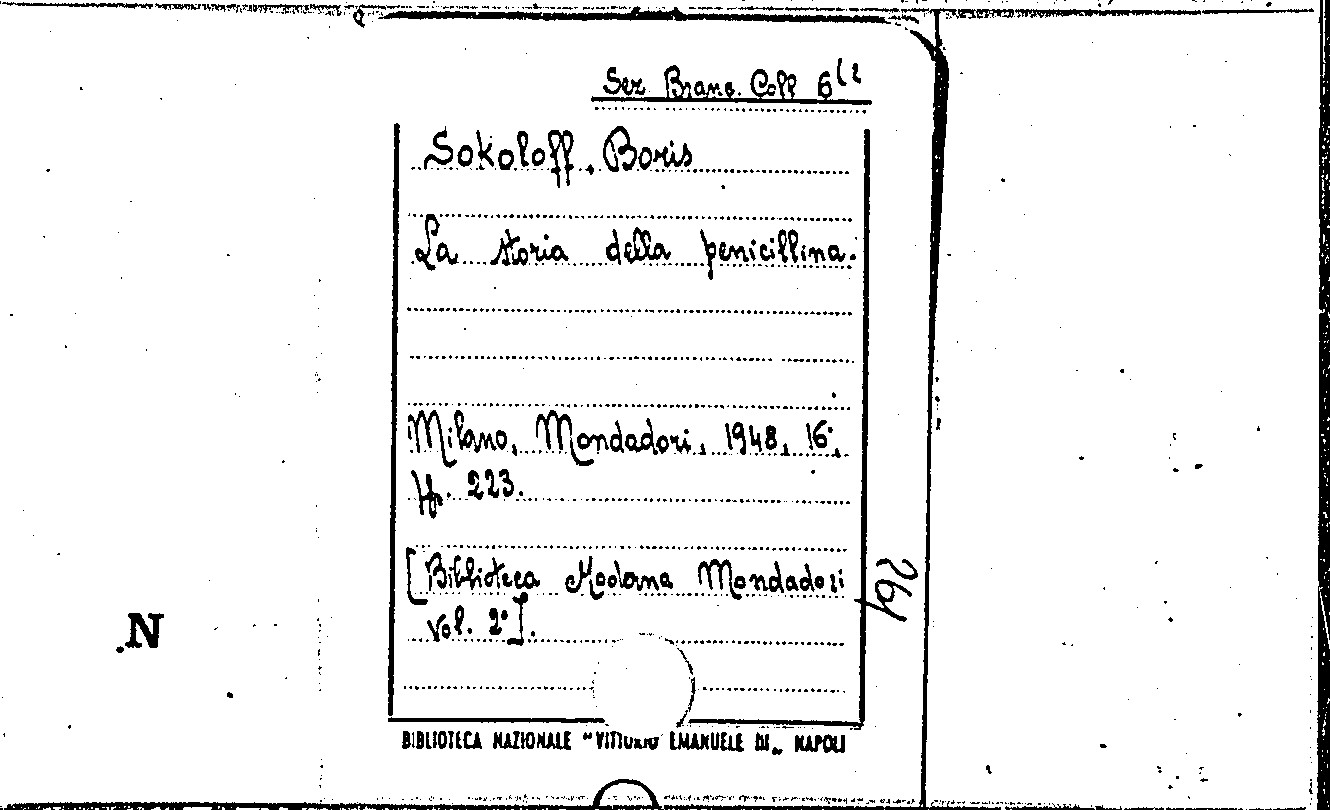 Sez. Branc. Coll 6
Sokoloff, Boris
La storia della penicillina.
Milano, Mondadori, 1948, 16°,
pp. 223.
[Biblioteca Moderna Mondadori
Vol. 2°].
264
N
BIBLIOTECA NAZIONALE "VITTORIO EMANUELE III„ NAPOLI